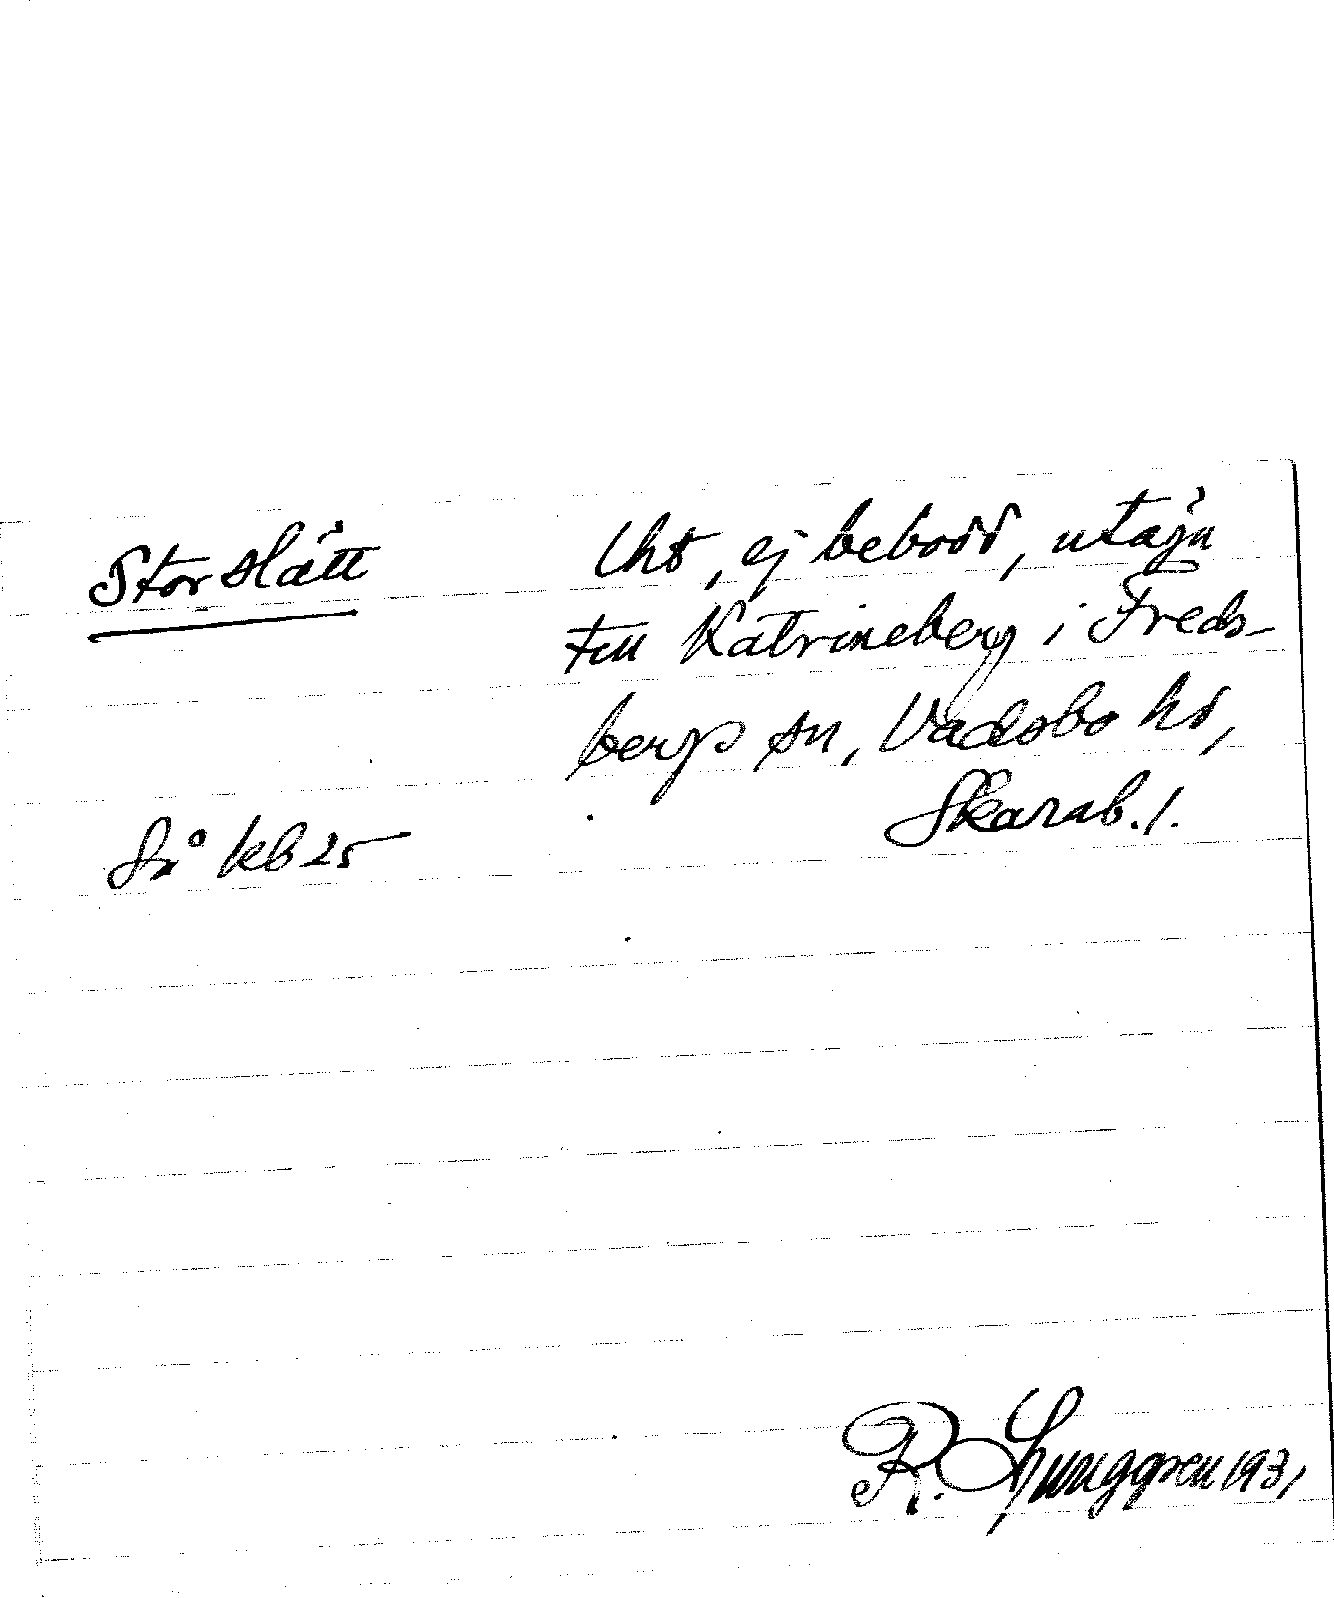 Storslätt
lht, ej bebodd, utägn
till Katrineberg i Freds-
bergs sn, Vadsbo hd,
Skarab. l.
kb 25
R. Ljunggren 1931